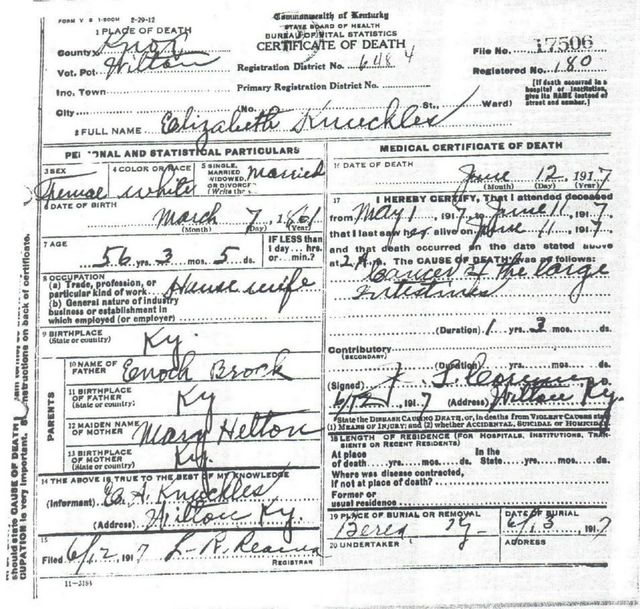 FORM V S 1-500M 2-29-12
Commonwealth of Kentucky
STATE BOARD OF HEALTH
BUREAU OF VITAL STATISTICS
CERTIFICATE OF DEATH
1 PLACE OF DEATH
County Knox
Vot. Pct. Wilton
Inc. Town
City
Registration District No. 6484
Primary Registration District No.
(No. St., Ward)
File No. 17506
Registered No. 180
[If death occurred in a hospital or institution, give its NAME instead of street and number.]
2 FULL NAME Elizabeth Knuckles
PERSONAL AND STATISTICAL PARTICULARS
3 SEX
Female
4 COLOR OR RACE
white
5 SINGLE, MARRIED, WIDOWED, OR DIVORCED (Write the
Married
6 DATE OF BIRTH
March 7, 1861
(Month) (Day) (Year)
7 AGE
56 yrs. 3 mos. 5 ds.
IF LESS than 1 day... hrs. or min.?
8 OCCUPATION
(a) Trade, profession, or particular kind of work House wife
(b) General nature of industry
business or establishment in
which employed (or employer)
9 BIRTHPLACE
(State or country)
Ky.
PARENTS
10 NAME OF FATHER Enoch Brock
11 BIRTHPLACE OF FATHER (State or country) Ky
12 MAIDEN NAME OF MOTHER Mary Helton
13 BIRTHPLACE OF MOTHER (State or country) Ky.
14 THE ABOVE IS TRUE TO THE BEST OF MY KNOWLEDGE
(Informant) E. A. Knuckles
(Address) Wilton Ky.
15
Filed 6/12, 1917 L. R.
REGISTRAR
11-3184
MEDICAL CERTIFICATE OF DEATH
16 DATE OF DEATH
June 12, 1917
(Month) (Day) (Year)
17 I HEREBY CERTIFY, That I attended deceased
from May 1, 1917, to June 11, 1917,
that I last saw her alive on June 11, 1917,
and that death occurred on the date stated above
at 2 m. The CAUSE OF DEATH was as follows:
Cancer of the large
Intestines
(Duration) 1 yrs. 3 mos. ds.
Contributory
(SECONDARY)
(Duration) yrs. mos. ds.
(Signed)
6/12, 1917 (Address) Wilton Ky.
State the DISEASE CAUSING DEATH, or, in deaths from VIOLENT CAUSES state
(1) MEANS OF INJURY; and (2) whether ACCIDENTAL, SUICIDAL or HOMICIDAL
18 LENGTH OF RESIDENCE (FOR HOSPITALS, INSTITUTIONS, TRANSIENTS OR RECENT RESIDENTS)
At place of death yrs. mos. ds. In the State yrs. mos. ds.
Where was disease contracted,
if not at place of death?
Former or
usual residence
19 PLACE OF BURIAL OR REMOVAL
Berea Ky
DATE OF BURIAL
6/13, 1917
20 UNDERTAKER
ADDRESS
should state CAUSE OF DEATH
CUPATION is very important.
instructions on back of certificate.